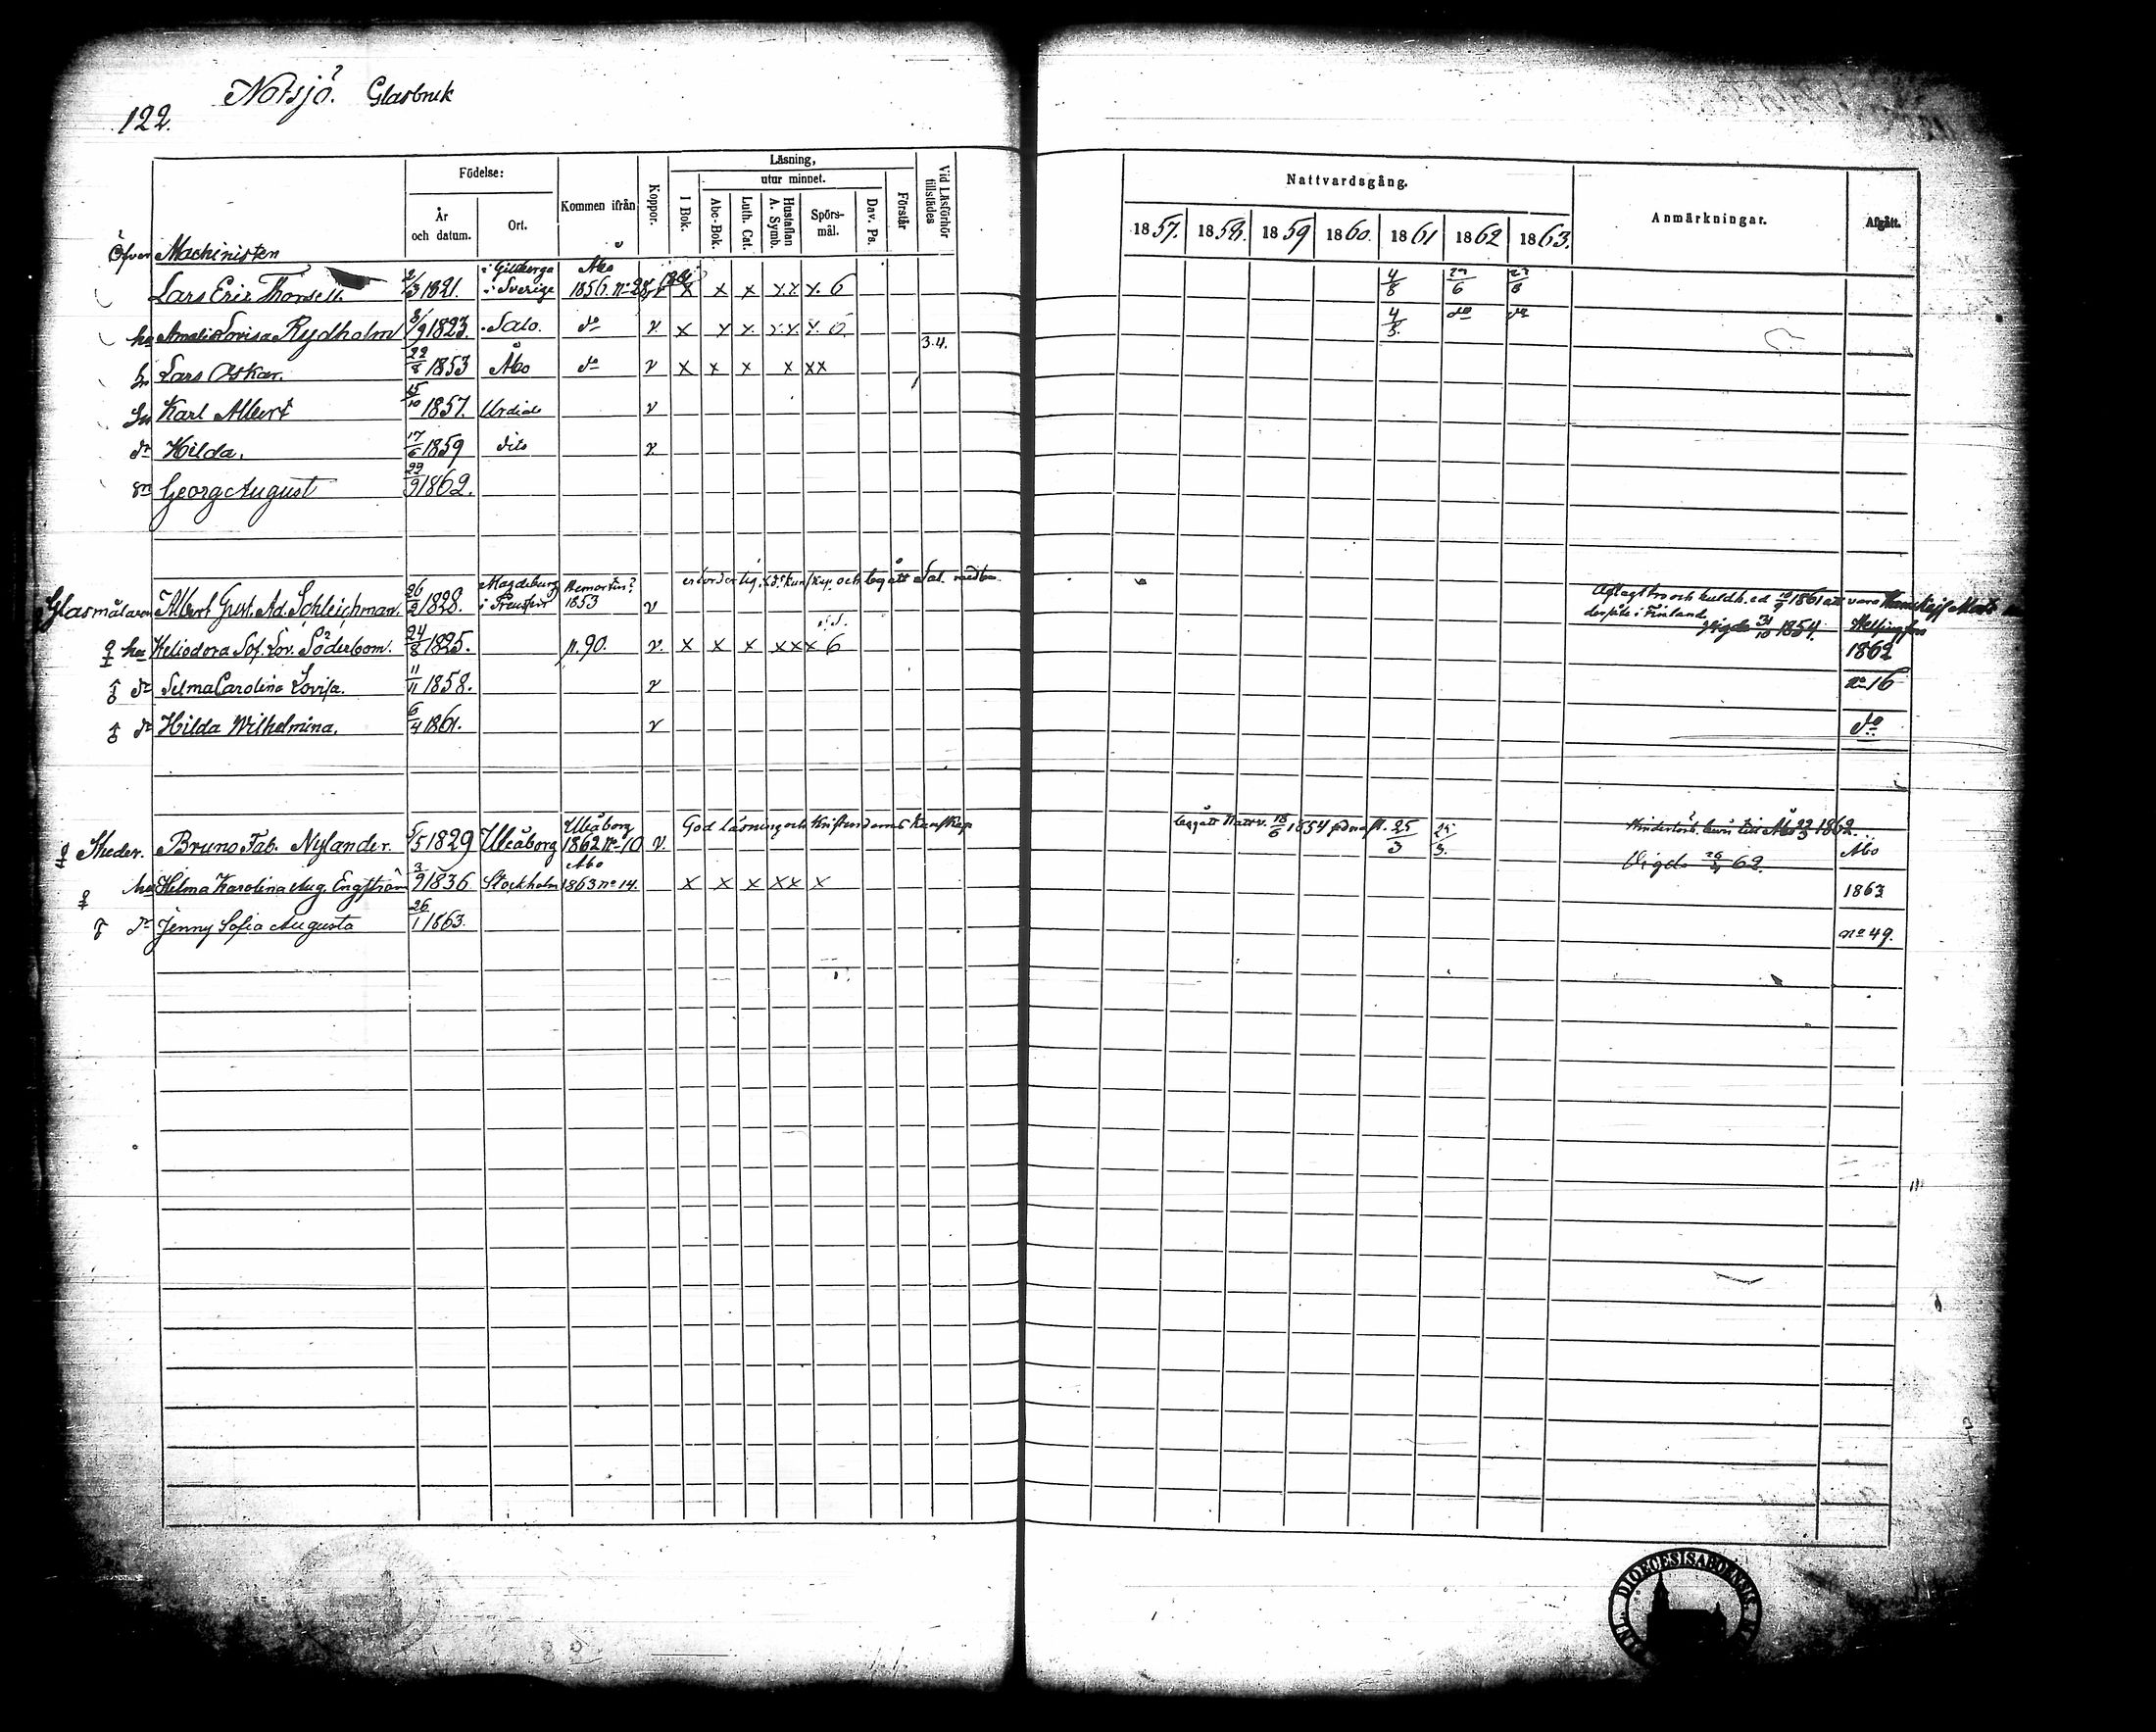 122.
Notsjö. Glasbruk
Födelse:
År och datum.
Ort.
Kommen ifrån
Koppor.
Läsning,
I Bok.
utur minnet.
Abc-Bok.
Luth. Cat.
Hustaflan A. Symb.
Spörsmål.
Dav. Ps.
Förstår
Vid Läsförhör tillstädes
Nattvardsgång.
1857. 1858. 1859 1860. 1861 1862 1863.
Anmärkningar.
Afgått.
Öfver Machinisten
Lars Eric Thorsell 2/3 1821. i Sverige Åbo 1856. no 28 v x x x x x x. 6 4/8
hu Amalia Lovisa Rydholm 8/9 1823. Salo. do v x x x x x x. 4/8 do do
3.4.
Sn Lars Oskar. 22/8 1853 Åbo do v x x x x x x
Sn Karl Albert 15/10 1857. Urdiala v
dr Hilda. 17/6 1859 dito v
sn Georg August 29/9 1862.
Glasmålaren Albert Gust. Ad. Schleichman. 26/2 1828. Magdeburg i Preussen 1853 v och begått
Aflagt tro och huldh. ed 1861 att vara
i Finland
Vigde 31/10 1854. Helsingfors
hu Heliodora Sof. Lov. Söderbom. 24/8 1825. p. 90. v. x x x x x x 6 1862
dr Selma Carolina Lovisa. 11/11 1858. v no 16
dr Hilda Wilhelmina. 6/4 1861. v do
Bruno Fab. Nylander. 5/5 1829 Uleåborg Uleåborg 1862 no 10 v. God läsning och Kristendoms Kunskap begått Nattv. 18/6 1854 25/3
1862. Åbo
Vigde 62.
hu Helma Karolina Aug. Engström 3/9 1836 Stockholm Åbo 1863 no 14. x x x x x x 1863
dr Jenny Sofia Augusta 26/1 1863. no 49.
DIOECESIS ABOENSIS